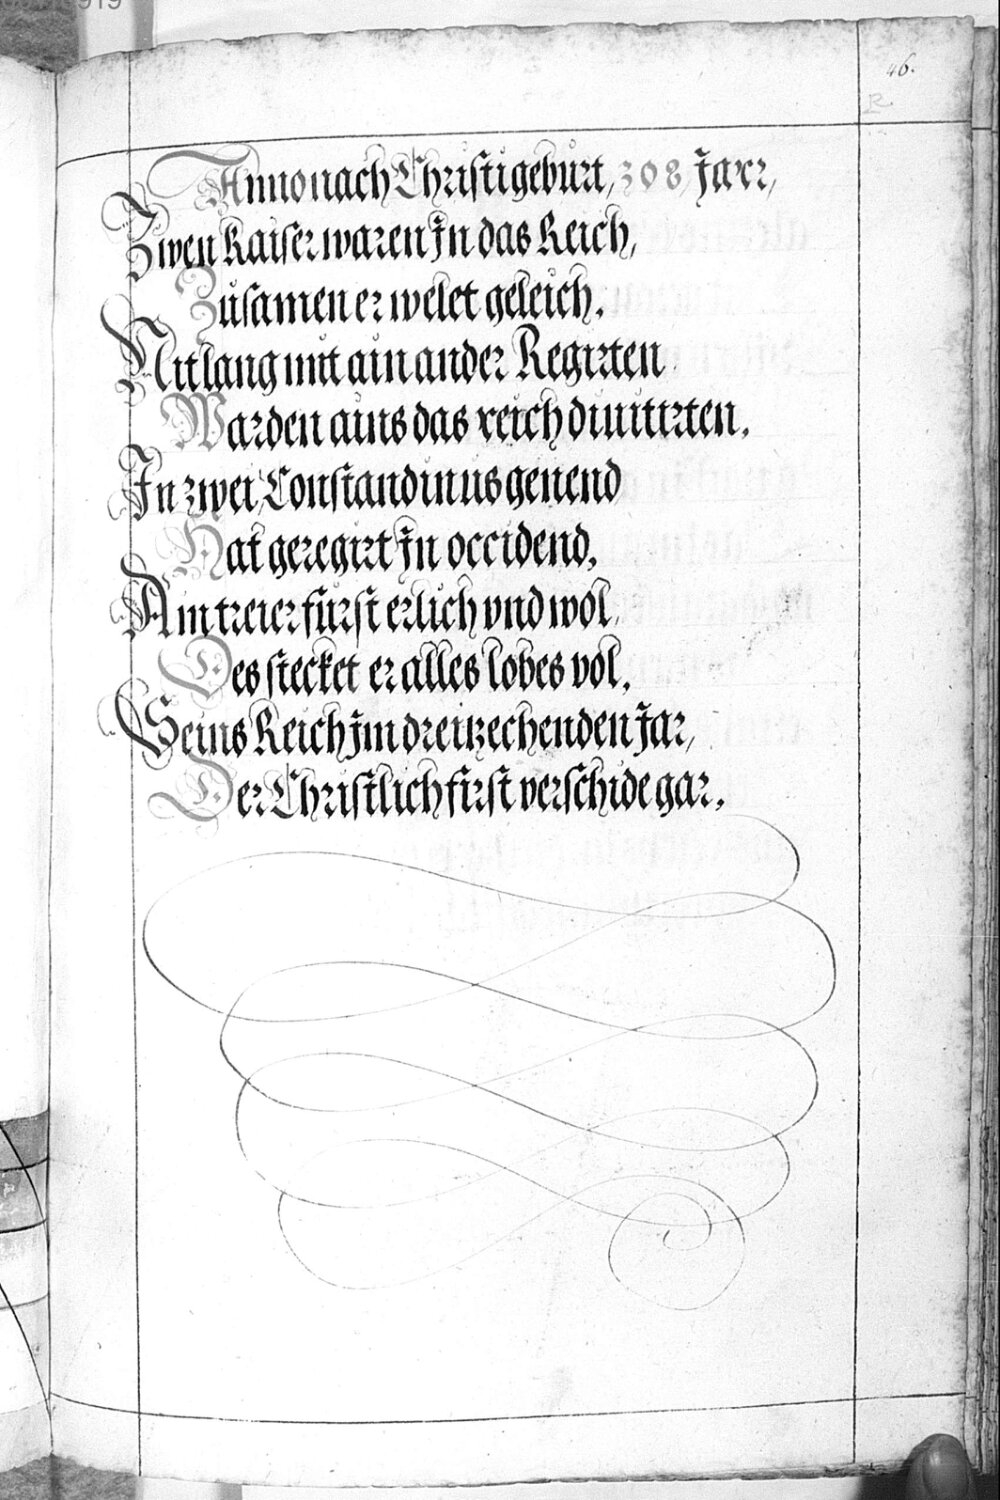 46.
R
Anno nach Christi geburt, 308 Jarr,
Zwen Kaiser waren Jn das Reich,
Zusamen erwelet geleich.
Nit lang mit ain ander Regirten
Warden ains das reich diuitirten.
Jn zwei, Constandinus genend
Hat geregirt Jn occidend,
Ain treier fürst erlich vnd wol,
Des stecket er alles lobes vol,
Seins Reich Jm dreitzechenden Jar,
Der Christlich first verschide gar.